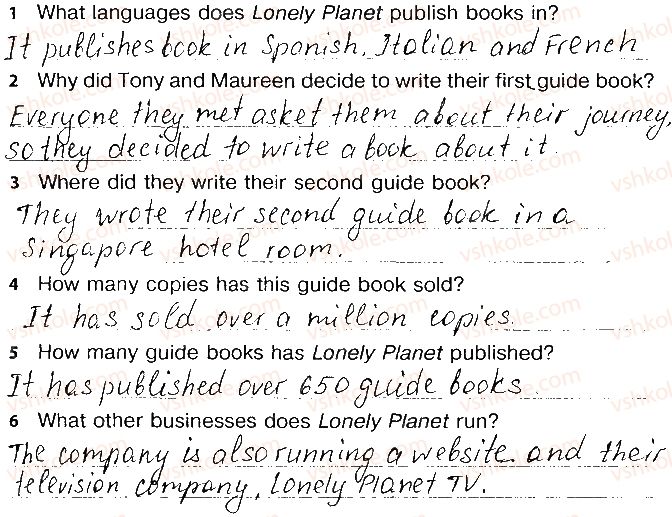 1 What languages does Lonely Planet publish books in?
It publishes book in Spanish, Italian and French
2 Why did Tony and Maureen decide to write their first guide book?
Everyone they met asket them about their journey,
so they decided to write a book about it.
3 Where did they write their second guide book?
They wrote their second guide book in a
Singapore hotel room.
4 How many copies has this guide book sold?
It has sold over a million copies.
5 How many guide books has Lonely Planet published?
It has published over 650 guide books.
6 What other businesses does Lonely Planet run?
The company is also running a website and their
television company, Lonely Planet TV.